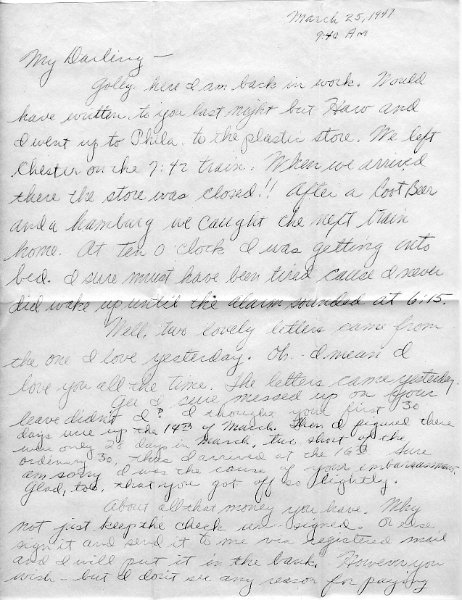 March 25, 1947
9:40 AM
My Darling —
Golly, here I am back in work. Would
have written to you last night but Haro and
I went up to Phila. to the plastic store. We left
Chester on the 7:42 train. When we arrived
there the store was closed!! After a Root Beer
and a hamburg we caught the next train
home. At ten O clock I was getting into
bed. I sure must have been tired cause I never
did wake up until the alarm sounded at 6:15.
Well, two lovely letters came from
the one I love yesterday. Oh - I mean I
love you all the time. The letters came yesterday.
Gee I sure missed up on your
leave didn't I? I thought your first 30
days were up the 14th of March. Then I figured there
were only 28 days in March, two short of the
ordinary 30, thus I arrived at the 16th. Sure
am sorry I was the cause of your embarrassment.
Glad, too, that you got off so lightly.
About all that money you have. Why
not just keep the check un-signed. Or else
sign it and send it to me via registered mail
and I will put it in the bank. However you
wish — but I don't see any reason for paying